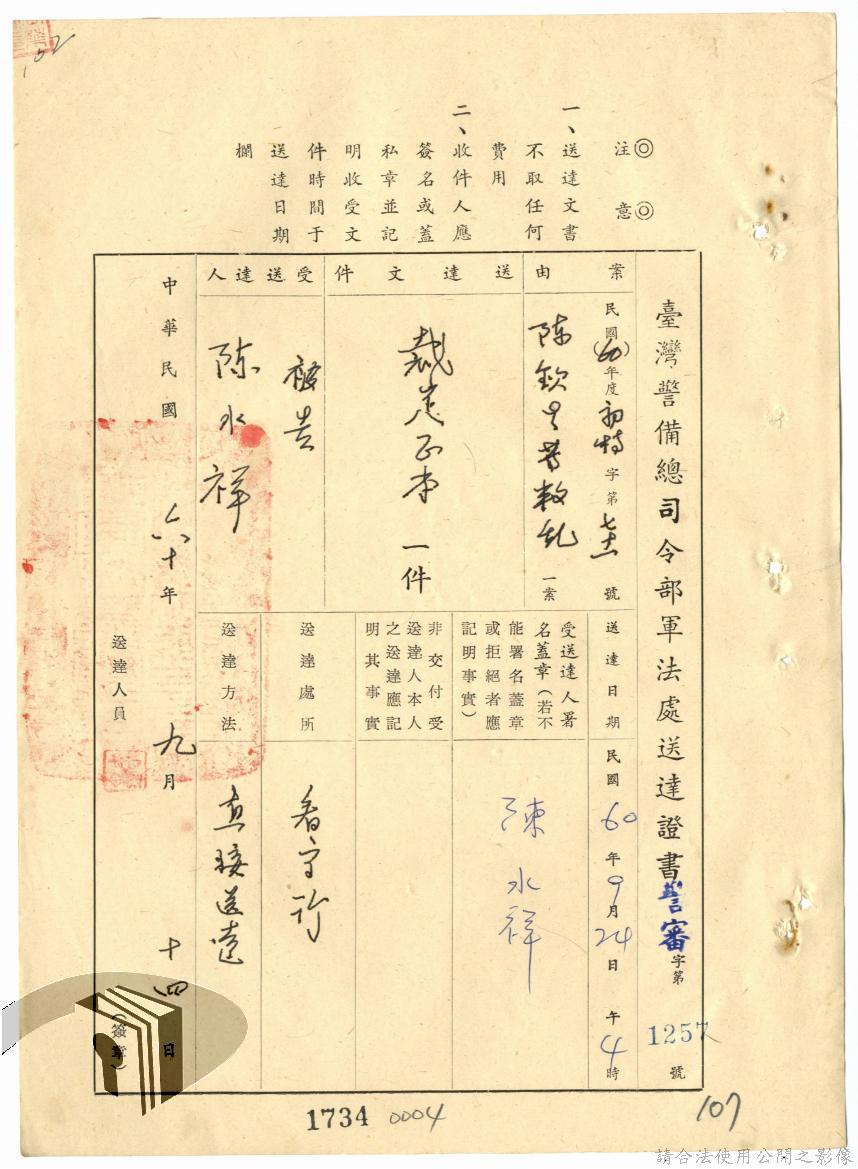 102
◎注意◎
一、送達文書
不取任何
費用
二、收件人應
簽名或蓋
私章並記
明收受文
件時間于
送達日期
欄
臺灣警備總司令部軍法處送達證書警審字第1257號
案由
民國(60)年度初特字第號
陈欽生等叛乱一案
送達文件
裁定正本一件
受送達人
被告
陈水祥
送達日期
民國60年9月24日午4時
受送達人署
名蓋章(若不
能署名蓋章
或拒絕者應
記明事實)
陳水祥
非交付受
送達人本人
之送達應記
明其事實
送達處所
看守所
送達方法
直接送達
中華民國六十年九月十四日
送達人員(簽章)
1734 0004
107
請合法使用公開之影像